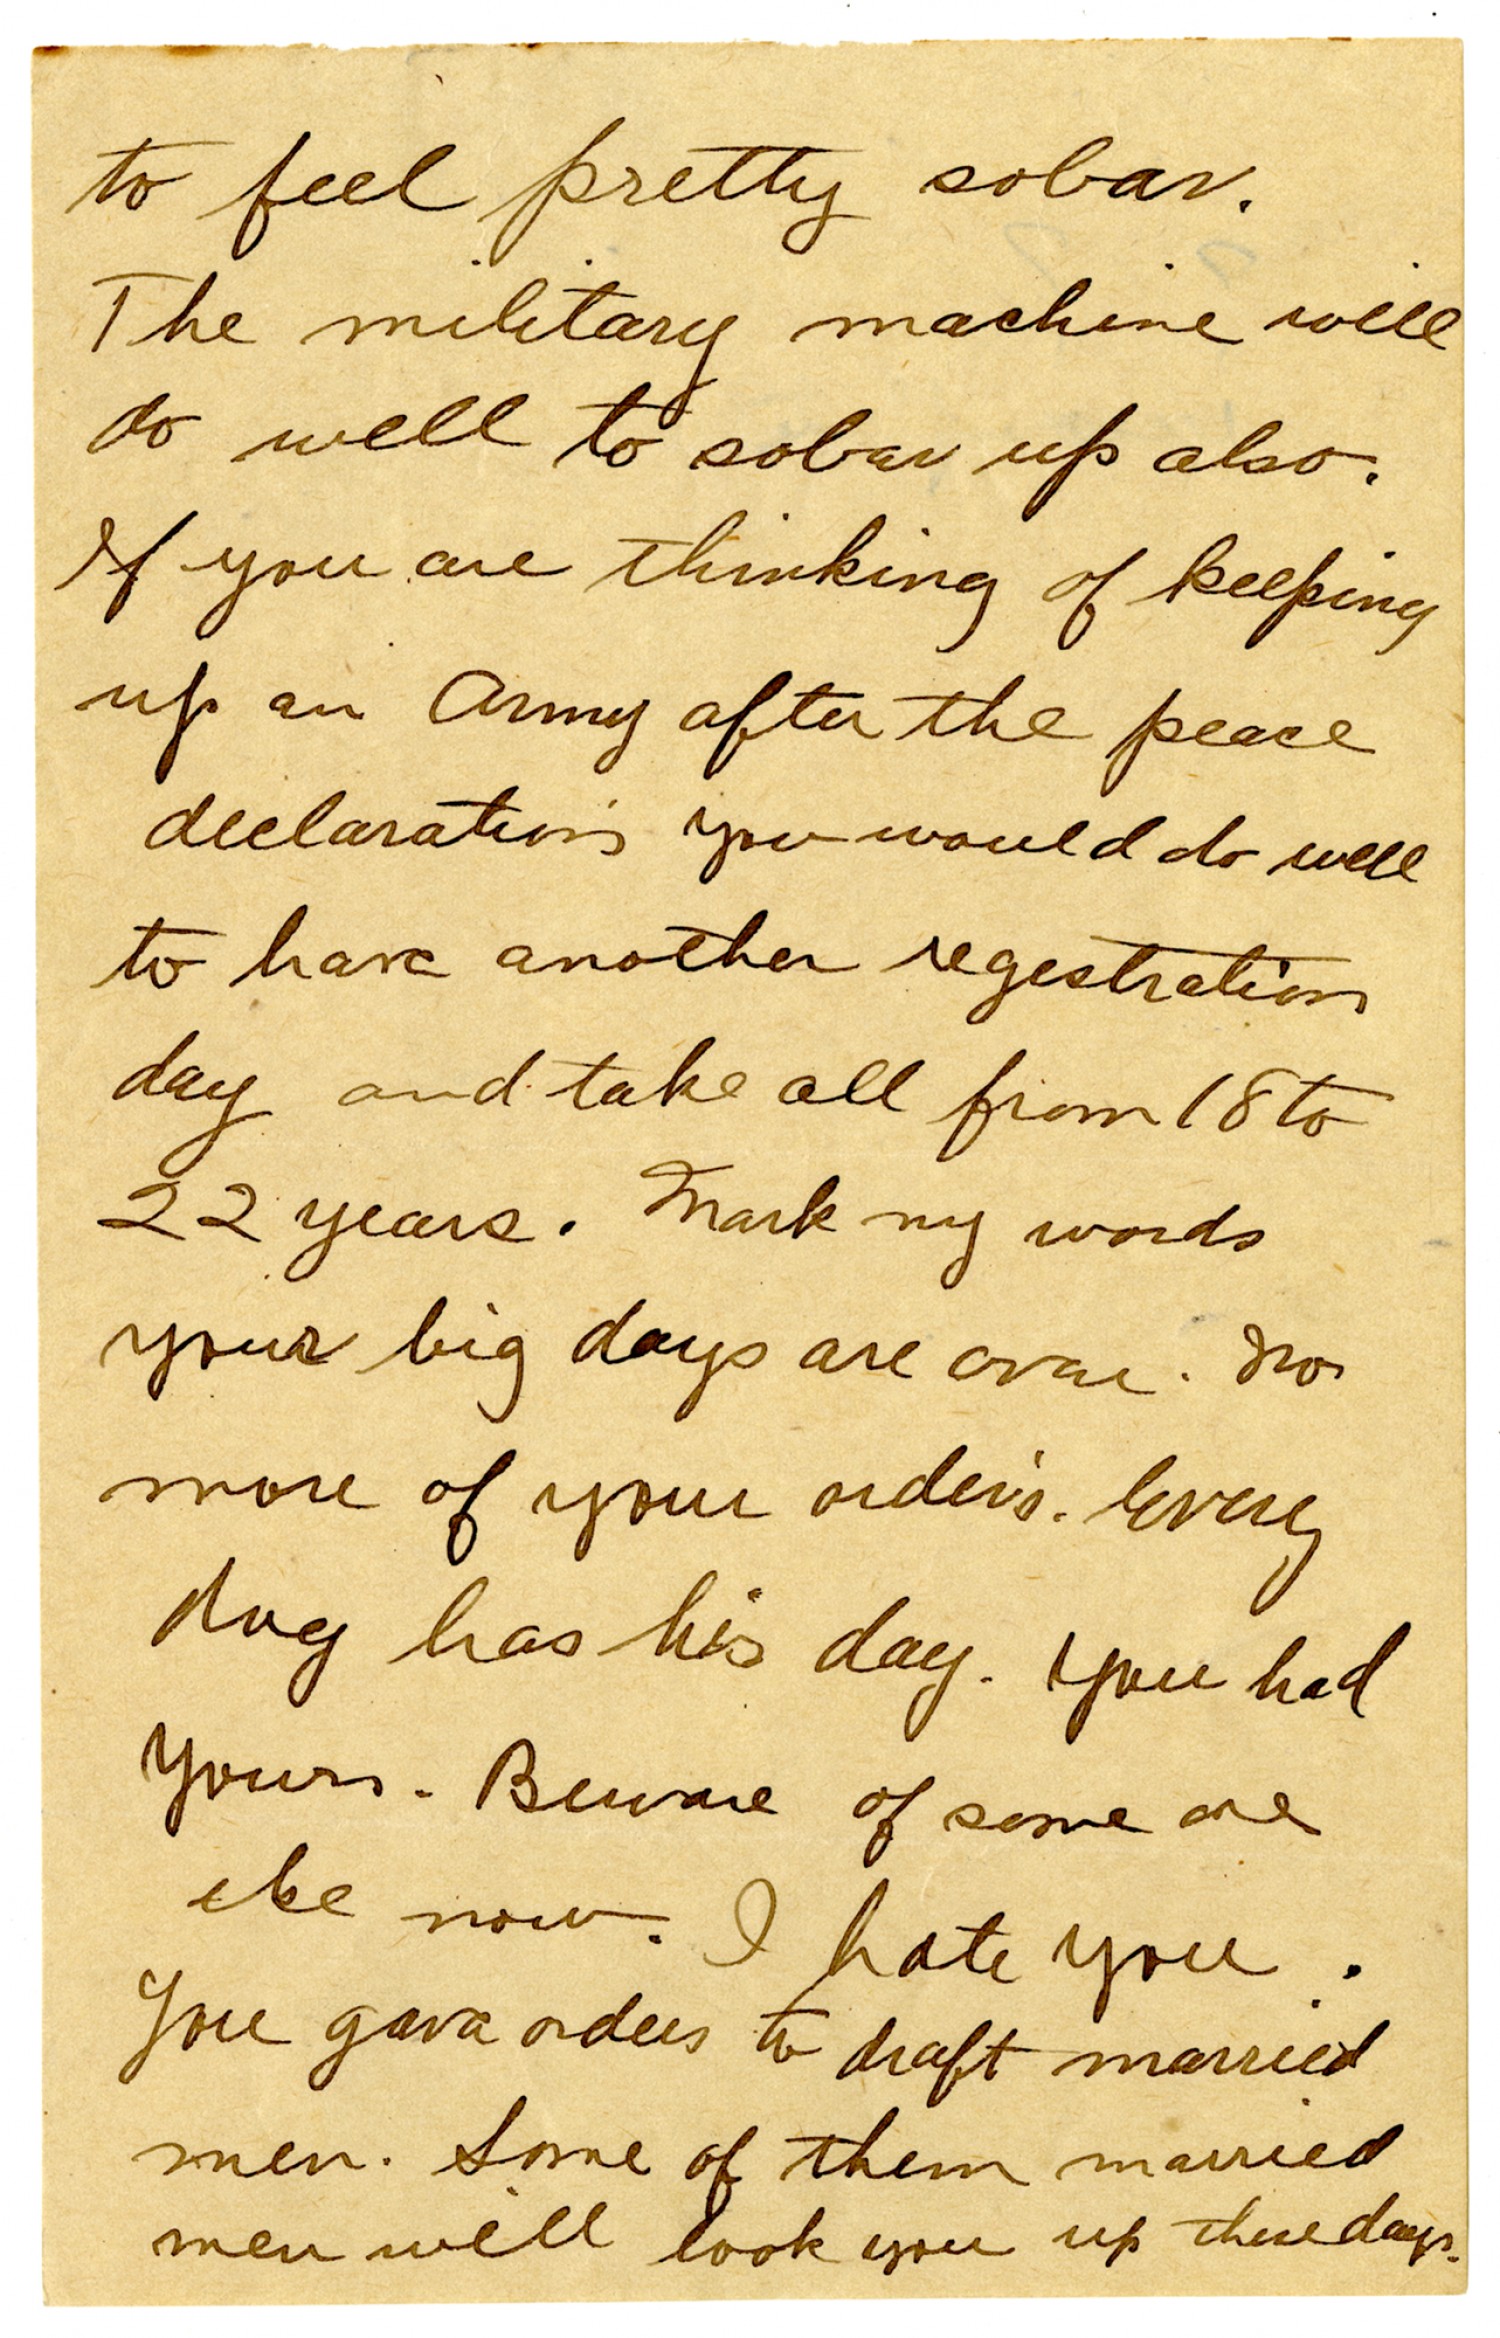 to feel pretty sobar.
The military machine will
do well to sobar up also.
If you are thinking of keeping
up an Army after the peace
declarations you would do well
to hava another regestration
day and take all from 18 to
22 years. Mark my words
your big days are ovar. No
more of your orders. Every
dog has his day. You had
yours. Beware of some one
else now. I hate you.
You gava orders to draft married
men. Some of them married
men will look you up these days.